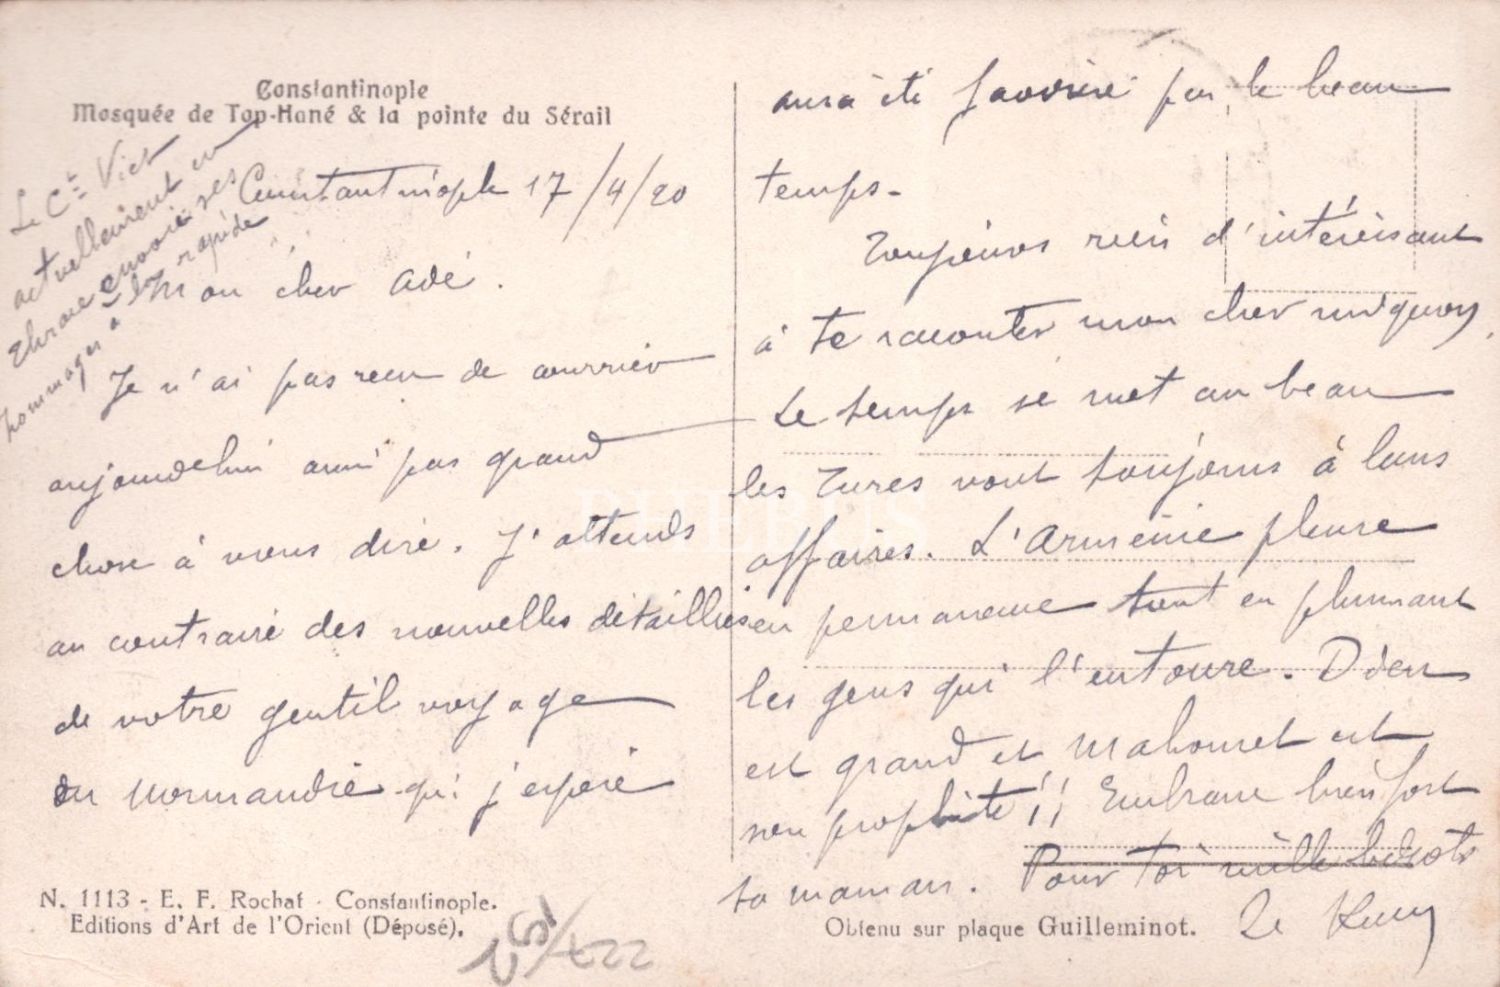 Constantinople
Mosquée de Top-Hané & la pointe du Sérail
Le Ct Vict
actuellement en
Thrace envoie ses
hommages à rapide
Constantinople 17/4/20
Mon cher Adé.
Je n'ai pas reçu de courrier
aujourdehui aussi pas grand
chose à vous dire. J'attends
au contraire des nouvelles détaillées
de votre gentil voyage
en Normandie qui j'espère
aura été favorisé par le beau
temps.
Toujours rien d'intéréssant
à te raconter mon cher mignon,
Le temps se met au beau
les Turcs vont toujours à leurs
affaires. L'Arménie pleure
en permanence tout en plumant
les gens qui l'entoure. Dieu
est grand et Mahomet est
son prophète !! Embrasse bien fort
ta maman. Pour toi mille bécots
Le
N. 1113 - E. F. Rochat - Constantinople.
Editions d'Art de l'Orient (Déposé).
Obtenu sur plaque Guilleminot.
PHEBUS